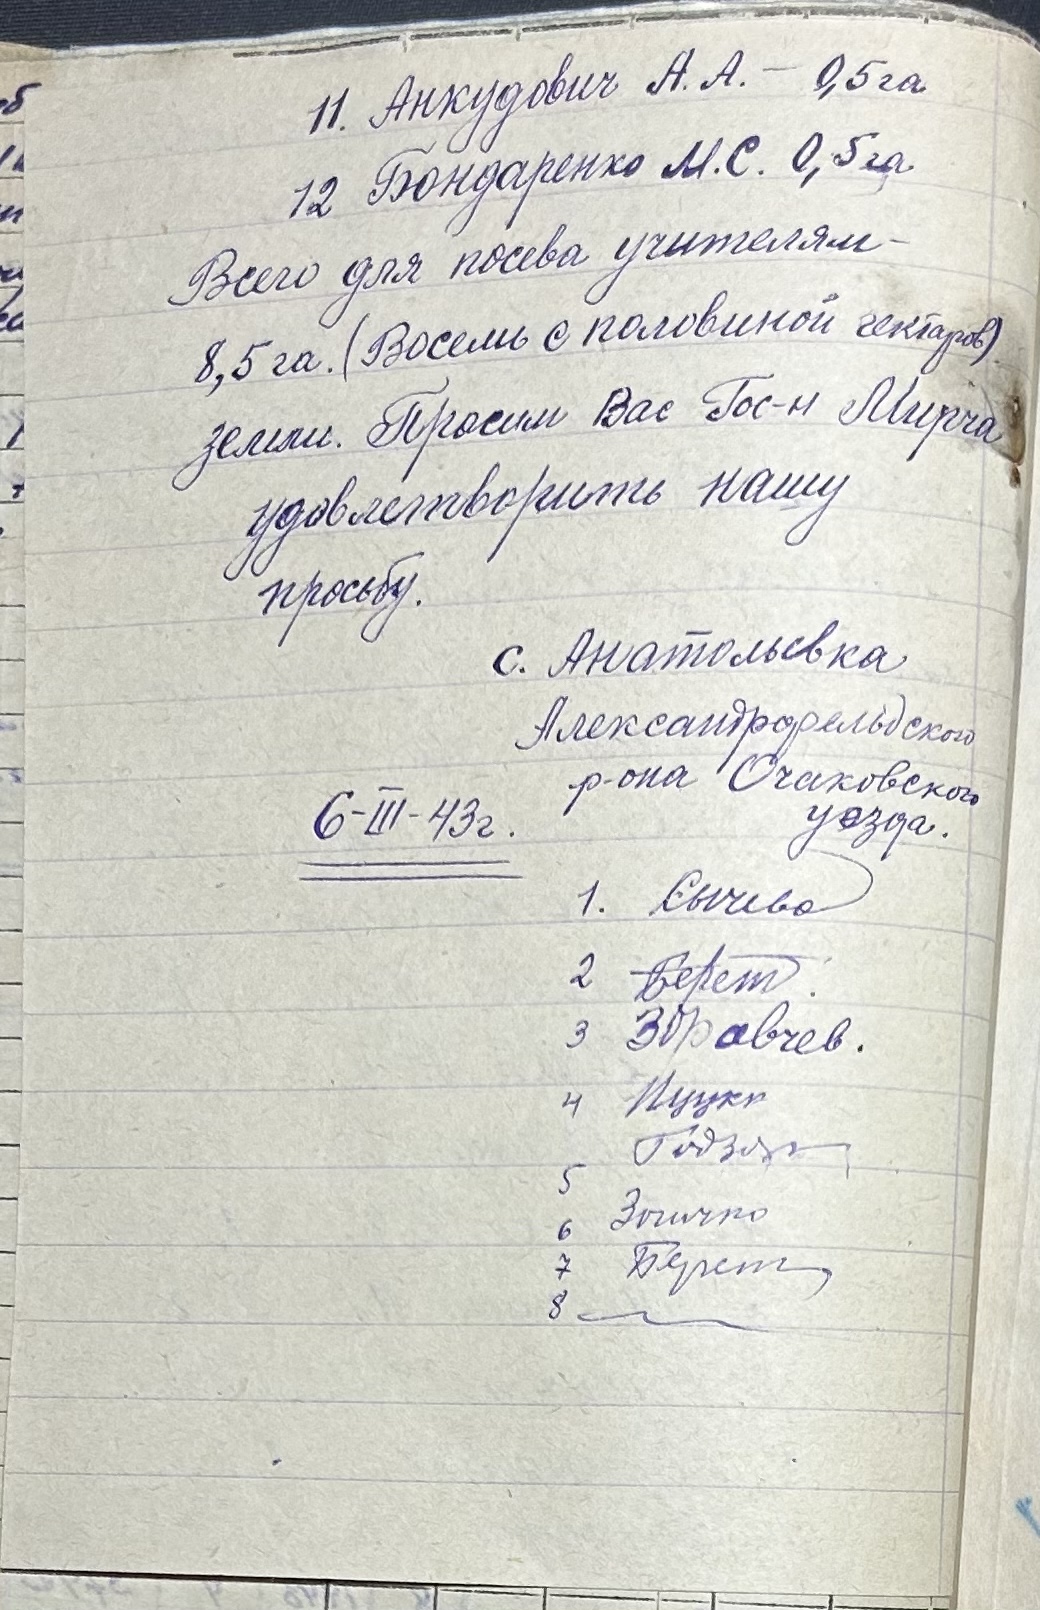 11. Анкудович А. А. – 0,5 га
12 Бондаренко М. С. 0,5 га
Всего для посева учителям –
8,5 га. (Восемь с половиной гектаров)
земли. Просим Вас Гос-н Мирча
удовлетворить нашу
просьбу.
с. Анатольевка
Александрфельдского
р-она Очаковского
уезда.
6-III-43г.
1. Сычева
2 Берет
3 Здравчев.
4
5
6
7 Берет
8